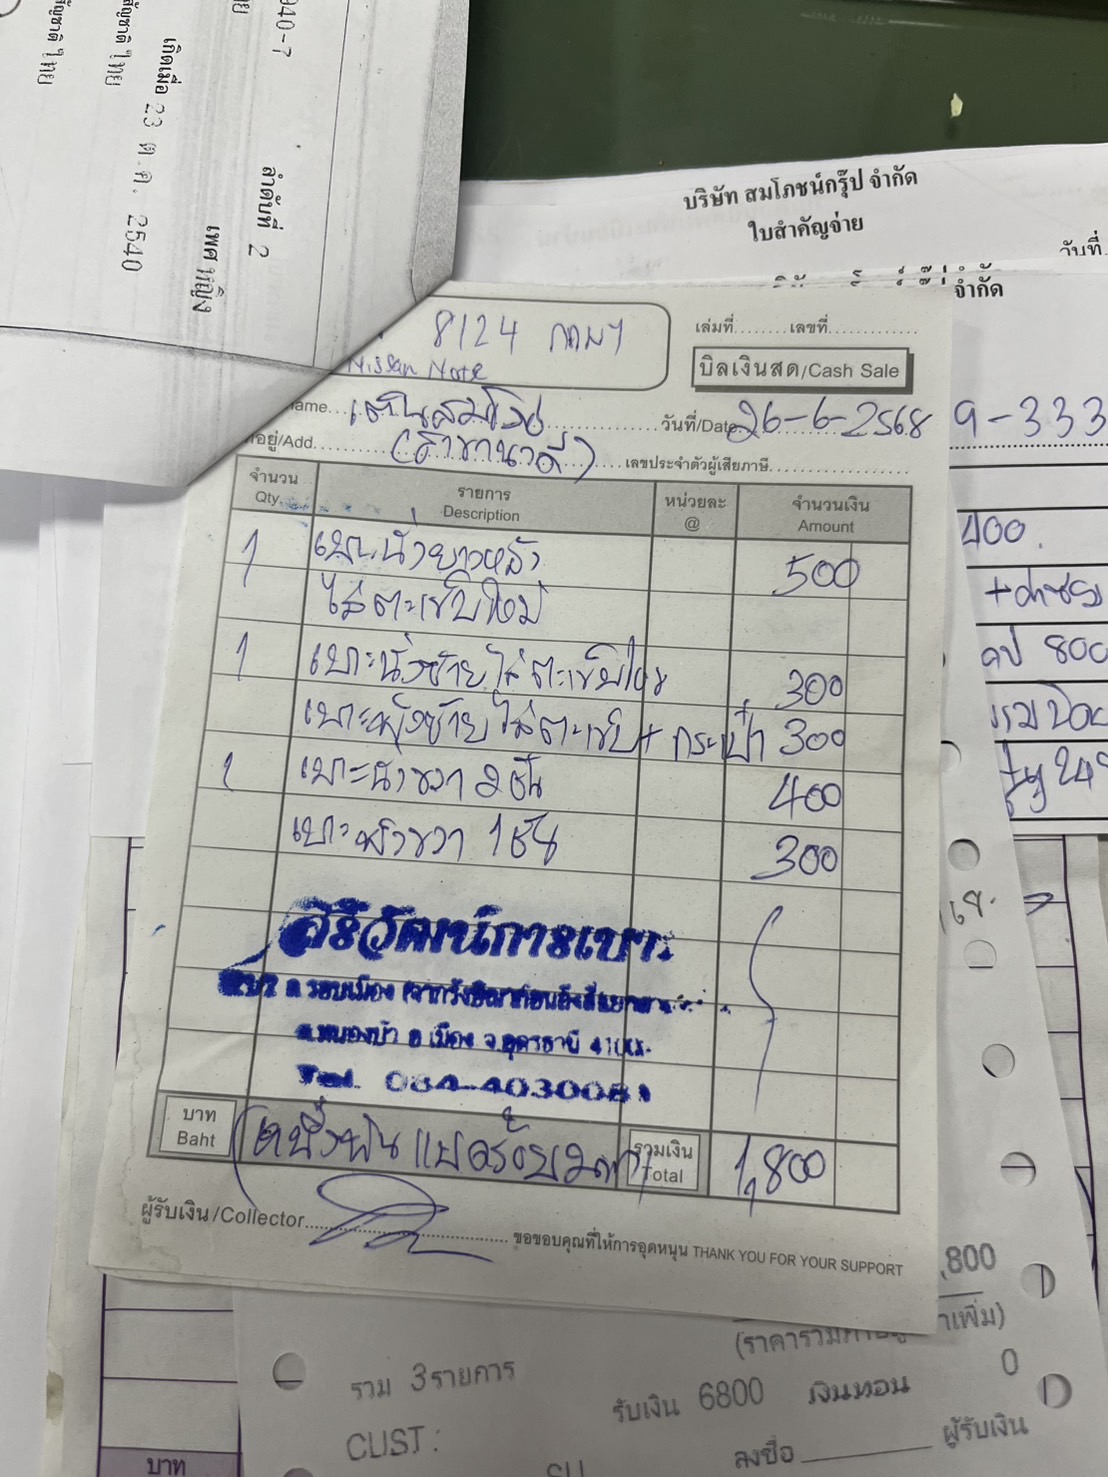 040-7
สัญชาติ ไทย
ลำดับที่ 2
เพศ หญิง
เกิดเมื่อ 23 ต.ค. 2540
สัญชาติ ไทย
บริษัท สมโภชน์กรุ๊ป จำกัด
ใบสำคัญจ่าย
วันที่
จำกัด
8124
Nissan Note
เล่มที่........เลขที่
บิลเงินสด/Cash Sale
ame... เต็นสมโภช วันที่/Date 26-6-2568
อยู่/Add. (ราชานาวดี) เลขประจำตัวผู้เสียภาษี
9-333
จำนวน Qty. รายการ Description หน่วยละ @ จำนวนเงิน Amount
1 เบาะนั่งยาวหลัง 500
ใส่ตะเข็บใหม่
1 เบาะนั่งซ้ายใส่ตะเข็บใหม่ 300
เบาะพิงซ้ายใส่ตะเข็บ + กระเป๋า 300
1 เบาะนั่งขวา 2 ชิ้น 400
เบาะพิงขวา 1 ชิ้น 300
400.
800
สิริวัฒน์การเบาะ
ถ.รอบเมือง
ต.หนองบัว อ.เมือง จ.อุดรธานี
Tel. 084-4030081
บาท Baht (หนึ่งพันแปดร้อยบาท) รวมเงิน Total 1,800
ผู้รับเงิน/Collector
ขอขอบคุณที่ให้การอุดหนุน THANK YOU FOR YOUR SUPPORT
,800
รวม 3รายการ
รับเงิน 6800 เงินทอน 0
CUST :
ลงชื่อ ผู้รับเงิน
บาท